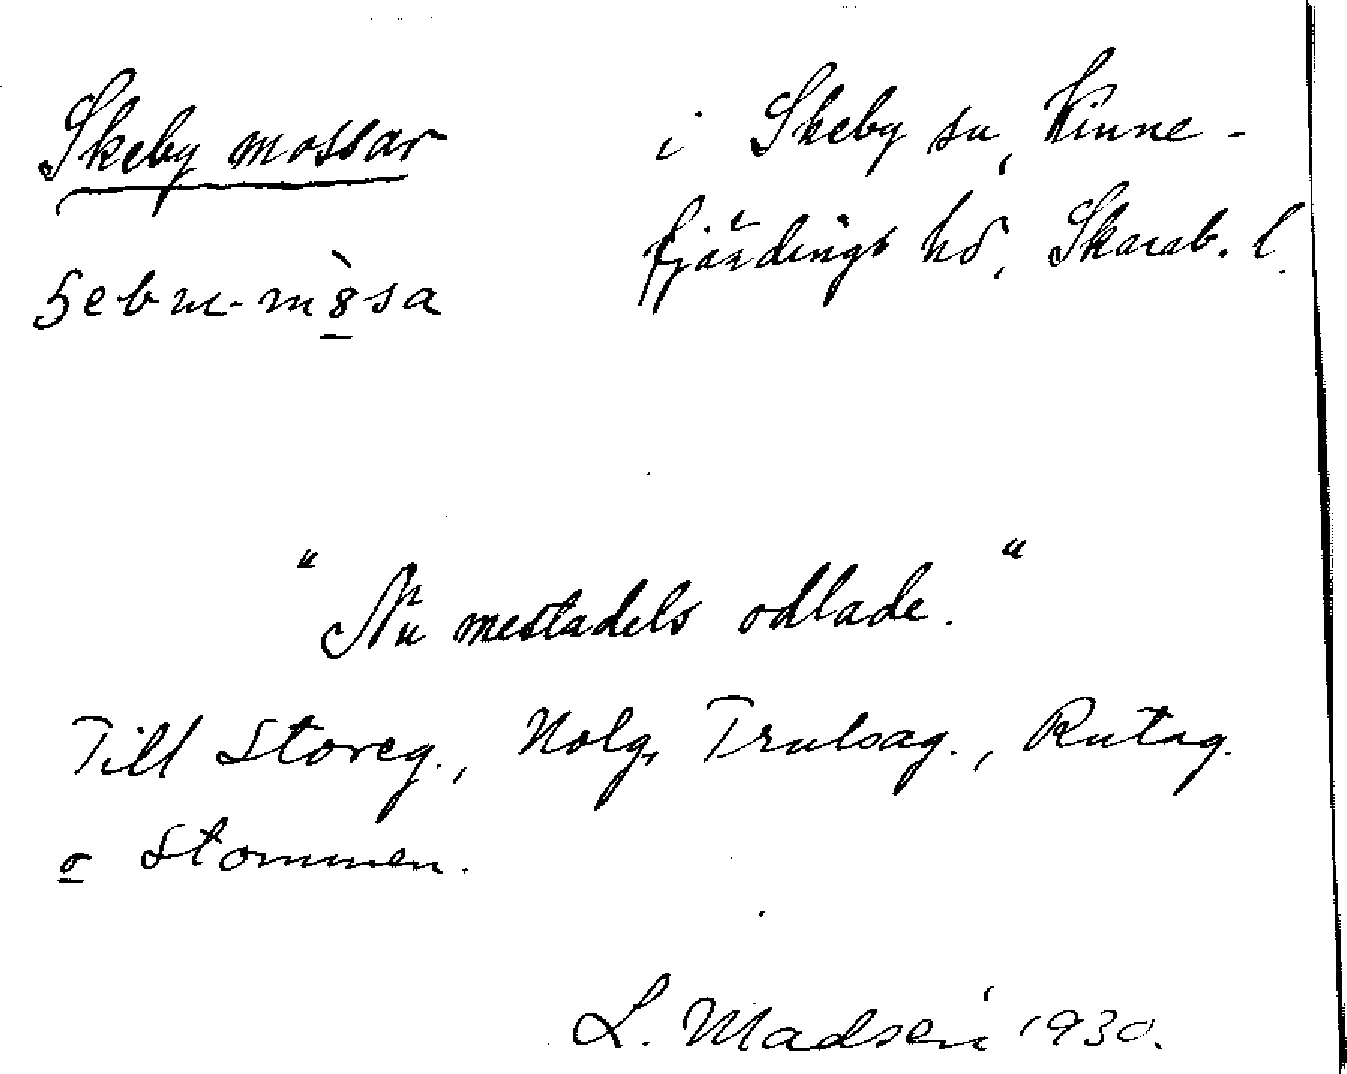 Skeby mossar
i Skeby sn, Kinne-
fjärdings hd, Skarab. l.
"Nu mestadels odlade."
Till Storeg., Nolg, Trulsag., Rutag.
o Stommen.
L. Madsén 1930.